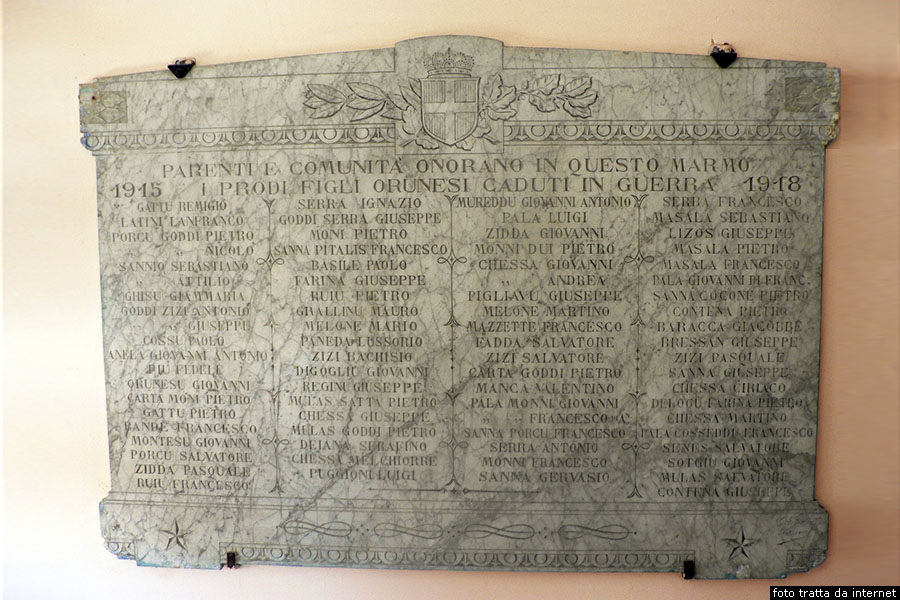 PARENTI E COMUNITÀ ONORANO IN QUESTO MARMO
1915 I PRODI FIGLI ORUNESI CADUTI IN GUERRA 1918
GATTU REMIGIO
LATINI LANFRANCO
PORCU GODDI PIETRO
" " NICOLO
SANNIO SEBASTIANO
" ATTILIO
GHISU GIAMMARIA
GODDI ZIZI ANTONIO
" " GIUSEPPE
COSSU PAOLO
ANELA GIOVANNI ANTONIO
PIU FEDELE
ORUNESU GIOVANNI
CARTA MONI PIETRO
GATTU PIETRO
BANDE FRANCESCO
MONTESU GIOVANNI
PORCU SALVATORE
ZIDDA PASQUALE
RUIU FRANCESCO
SERRA IGNAZIO
GODDI SERRA GIUSEPPE
MONI PIETRO
SANNA PITALIS FRANCESCO
BASILE PAOLO
FARINA GIUSEPPE
RUIU PIETRO
GRALLINU MAURO
MELONE MARIO
PANEDA LUSSORIO
ZIZI BACHISIO
DIGOGLIU GIOVANNI
REGINU GIUSEPPE
MULAS SATTA PIETRO
CHESSA GIUSEPPE
MULAS GODDI PIETRO
DEIANA SERAFINO
CHESSA MELCHIORRE
PUGGIONI LUIGI
MUREDDU GIOVANNI ANTONIO
PALA LUIGI
ZIDDA GIOVANNI
MONNI DUI PIETRO
CHESSA GIOVANNI
" ANDREA
PIGLIAVU GIUSEPPE
MELONE MARTINO
MAZZETTE FRANCESCO
FADDA SALVATORE
ZIZI SALVATORE
CARTA GODDI PIETRO
MANCA VALENTINO
PALA MONNI GIOVANNI
" " FRANCESCO
SANNA PORCU FRANCESCO
SERRA ANTONIO
MONNI FRANCESCO
SANNA GERVASIO
SERRA FRANCESCO
MASALA SEBASTIANO
LIZOS GIUSEPPE
MASALA PIETRO
MASALA FRANCESCO
PALA GIOVANNI DI FRANC.
SANNA COCONE PIETRO
CONTENA PIETRO
BARACCA GIACOBBE
BRESSAN GIUSEPPE
ZIZI PASQUALE
SANNA GIUSEPPE
CHESSA CIRIACO
DELOGU FARINA PIETRO
CHESSA MARTINO
PALA COSSEDDU FRANCESCO
SENES SALVATORE
SOTGIU GIOVANNI
MULAS SALVATORE
CONTENA GIUSEPPE
foto tratta da internet